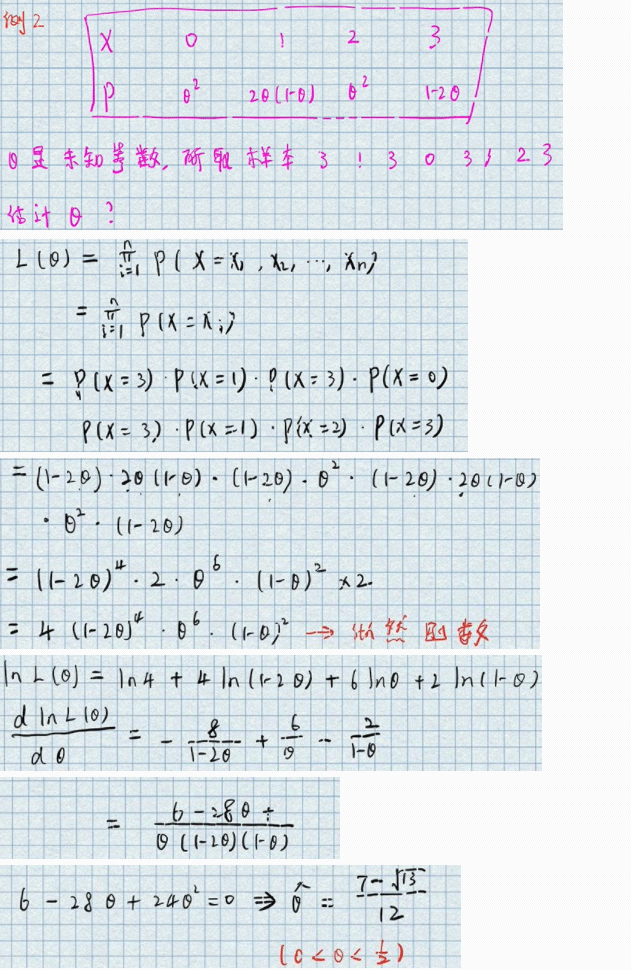 例2
X 0 1 2 3
P θ² 2θ(1-θ) θ² 1-2θ
θ是未知参数, 所取样本 3 1 3 0 3 1 2 3
估计 θ ?
L(θ) = ∏ᵢ₌₁ⁿ P(X=x₁, x₂, ⋯, xₙ)
= ∏ᵢ₌₁ⁿ P(X=xᵢ)
= P(X=3)·P(X=1)·P(X=3)·P(X=0)
P(X=3)·P(X=1)·P(X=2)·P(X=3)
= (1-2θ)·2θ(1-θ)·(1-2θ)·θ²·(1-2θ)·2θ(1-θ)
·θ²·(1-2θ)
= (1-2θ)⁴·2·θ⁶·(1-θ)²×2.
= 4(1-2θ)⁴·θ⁶·(1-θ)² → 似然函数
ln L(θ) = ln4 + 4 ln(1-2θ) + 6 lnθ + 2 ln(1-θ)
d ln L(θ) / dθ = - 8/(1-2θ) + 6/θ - 2/(1-θ)
= (6-28θ+) / (θ(1-2θ)(1-θ))
6 - 28θ + 24θ² = 0 ⇒ θ̂ = (7-√13)/12
(0<θ<1/2)